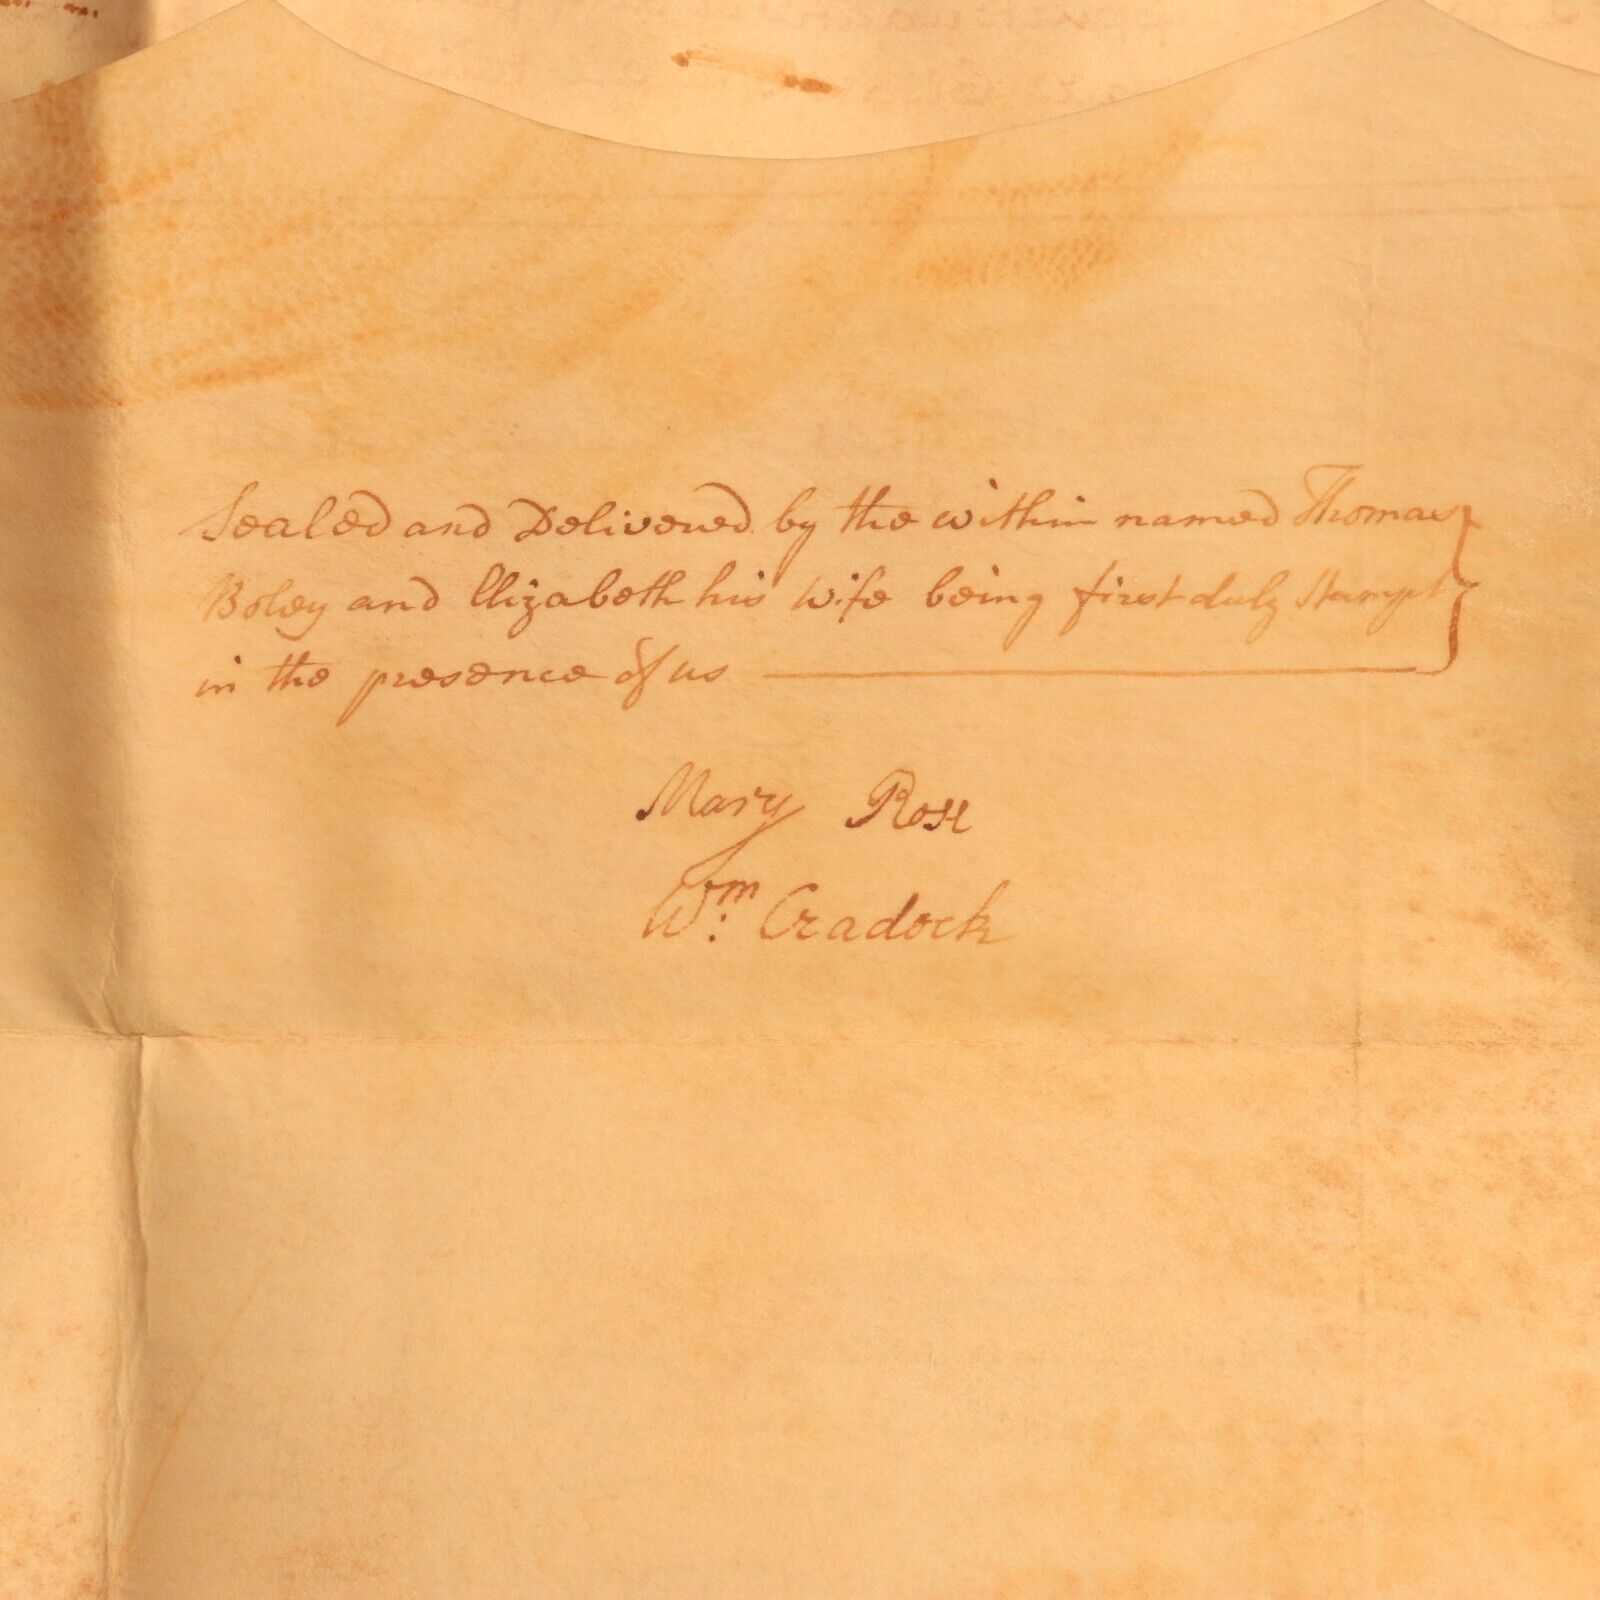 Sealed and Delivered by the within named Thomas
Boley and Elizabeth his Wife being first duly Stampt
in the presence of us
Mary Ross
Wm: Cradock